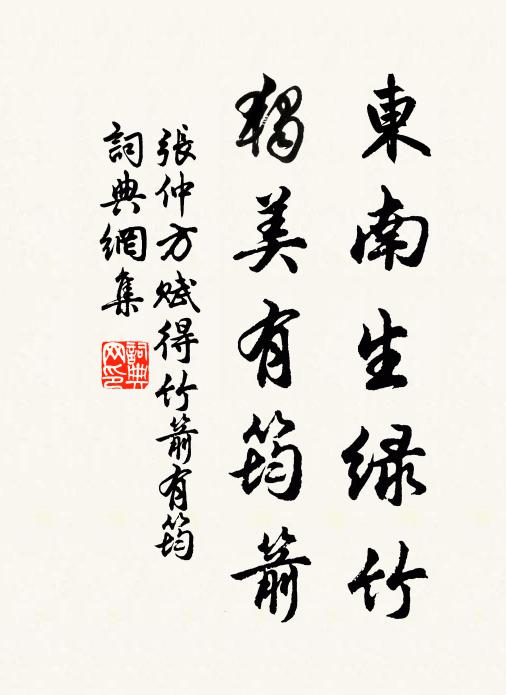 東南生绿竹
獨美有筠箭
張仲方赋得竹箭有筠
詞典網集
詞典
网印